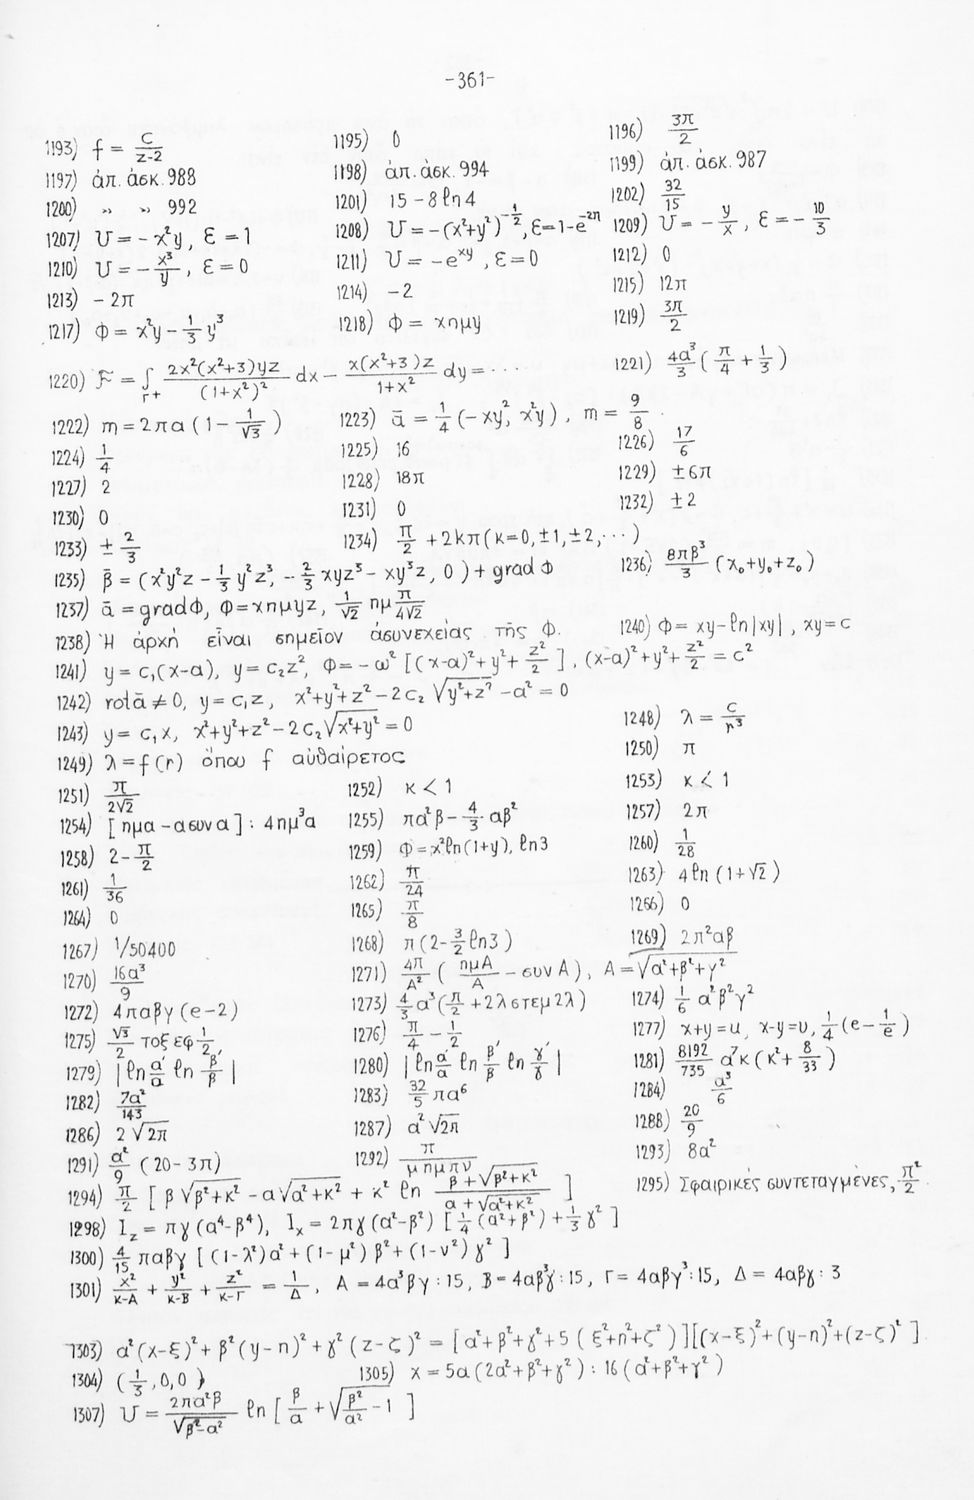 -361-
1193) f = c/(z-2) 1195) 0 1196) 3π/2
1197) ἀπ. ἀσκ. 988 1198) ἀπ. ἀσκ. 994 1199) ἀπ. ἀσκ. 987
1200) » » 992 1201) 15 - 8ℓn4 1202) 32/15
1207) U = -x²y, ε = 1 1208) U = -(x²+y²)^(-1/2), ε = 1-e^(-2π) 1209) U = -y/x, ε = -10/3
1210) U = -x³/y, ε = 0 1211) U = -e^(xy), ε = 0 1212) 0
1213) -2π 1214) -2 1215) 12π
1217) Φ = x²y - 1/3 y³ 1218) Φ = xημy 1219) 3π/2
1220) F = ∫_(Γ+) 2x²(x²+3)yz/(1+x²)² dx - x(x²+3)z/(1+x²) dy = ··· 1221) 4a³/3 (π/4 + 1/3)
1222) m = 2πα(1 - 1/√3) 1223) ā = 1/4 (-xy², x²y), m = 9/8.
1224) 1/4 1225) 16 1226) 17/6
1227) 2 1228) 18π 1229) ±6π
1230) 0 1231) 0 1232) ±2
1233) ± 2/3 1234) π/2 + 2kπ(κ=0,±1,±2,···)
1235) β̄ = (x²y²z - 1/3 y²z³, -2/3 xyz³ - xy³z, 0) + grad Φ 1236) 8πβ³/3 (x₀+y₀+z₀)
1237) ā = gradΦ, Φ = xημyz, 1/√2 ημ π/(4√2)
1238) Ἡ ἀρχή εἶναι σημεῖον ἀσυνεχείας τῆς Φ. 1240) Φ = xy-ℓn|xy|, xy = c
1241) y = c₁(x-α), y = c₂z², Φ = -ω²[(x-α)²+y²+z²/2], (x-α)²+y²+z²/2 = c²
1242) rotā ≠ 0, y = c₁z, x²+y²+z²-2c₂√(y²+z²) -α² = 0
1243) y = c₁x, x²+y²+z²-2c₂√(x²+y²) = 0 1248) λ = c/r³
1249) λ = f(r) ὅπου f αὐθαίρετος 1250) π
1251) π/(2√2) 1252) κ < 1 1253) κ < 1
1254) [ημα - ασυνα] : 4ημ³α 1255) πα²β - 4/3·αβ² 1257) 2π
1258) 2 - π/2 1259) Φ = x²ℓn(1+y), ℓn3 1260) 1/28
1261) 1/36 1262) π/24 1263) 4ℓn(1+√2)
1264) 0 1265) π/8 1266) 0
1267) 1/50400 1268) π(2 - 3/2 ℓn3) 1269) 2π²αβ
1270) 16α³/9 1271) 4π/A² (ημA/A - συνA), A = √(α²+β²+γ²)
1272) 4παβγ(e-2) 1273) 4/3 α³(π/2 + 2λστεμ2λ) 1274) 1/6 α²β²γ²
1275) √3/2 τοξεφ 1/2 1276) π/4 - 1/2 1277) x+y=u, x-y=υ, 1/4(e - 1/e)
1279) |ℓn α'/α ℓn β'/β| 1280) |ℓn α'/α ℓn β'/β ℓn γ'/γ| 1281) 8192/735 α⁷κ(κ² + 8/33)
1282) 7α²/143 1283) 32/5 πα⁶ 1284) α³/6
1286) 2√2π 1287) α²√2π 1288) 20/9
1291) α²/9 (20-3π) 1292) π/(μημπν) 1293) 8α²
1294) π/2 [β√(β²+κ²) - α√(α²+κ²) + κ² ℓn (β+√(β²+κ²))/(α+√(α²+κ²))] 1295) Σφαιρικές συντεταγμένες, π²/2
1298) I_z = πγ(α⁴-β⁴), I_x = 2πγ(α²-β²)[1/4(α²+β²) + 1/3 γ²]
1300) 4/15 παβγ[(1-λ²)α²+(1-μ²)β²+(1-ν²)γ²]
1301) x²/(κ-A) + y²/(κ-B) + z²/(κ-Γ) = 1/Δ, A = 4α³βγ:15, B = 4αβ³γ:15, Γ = 4αβγ³:15, Δ = 4αβγ:3
1303) α²(x-ξ)²+β²(y-η)²+γ²(z-ζ)² = [α²+β²+γ²+5(ξ²+η²+ζ²)][(x-ξ)²+(y-η)²+(z-ζ)²].
1304) (1/3,0,0) 1305) x = 5α(2α²+β²+γ²):16(α²+β²+γ²)
1307) U = 2πα²β/√(β²-α²) ℓn[β/α + √(β²/α² - 1)]